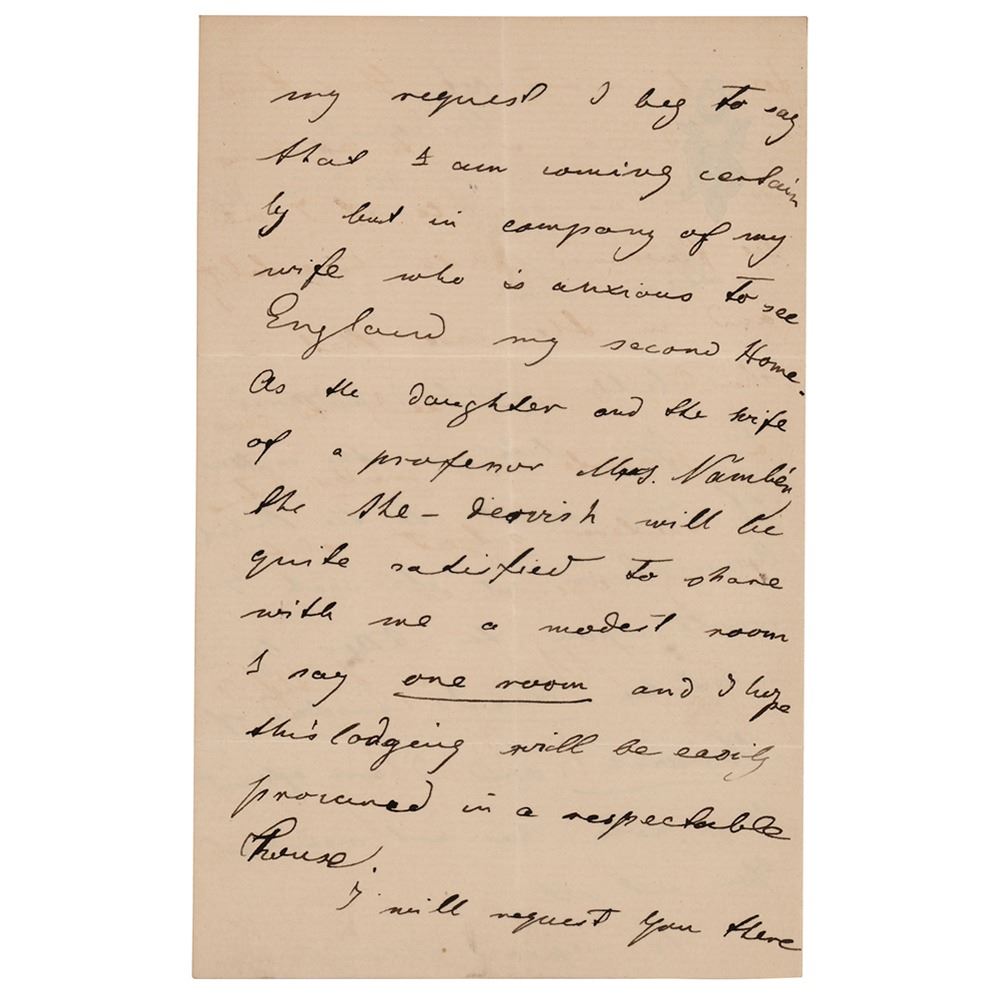 my request I beg to say
that I am coming certain
ly but in company of my
wife who is anxious to see
England my second Home.
As the daughter and the wife
of a professor Mrs. Vambéry
the the - dervish will be
quite satisfied to share
with me a modest room
I say one room and I hope
this lodging will be easily
procured in a respectable
house.
I will request you there